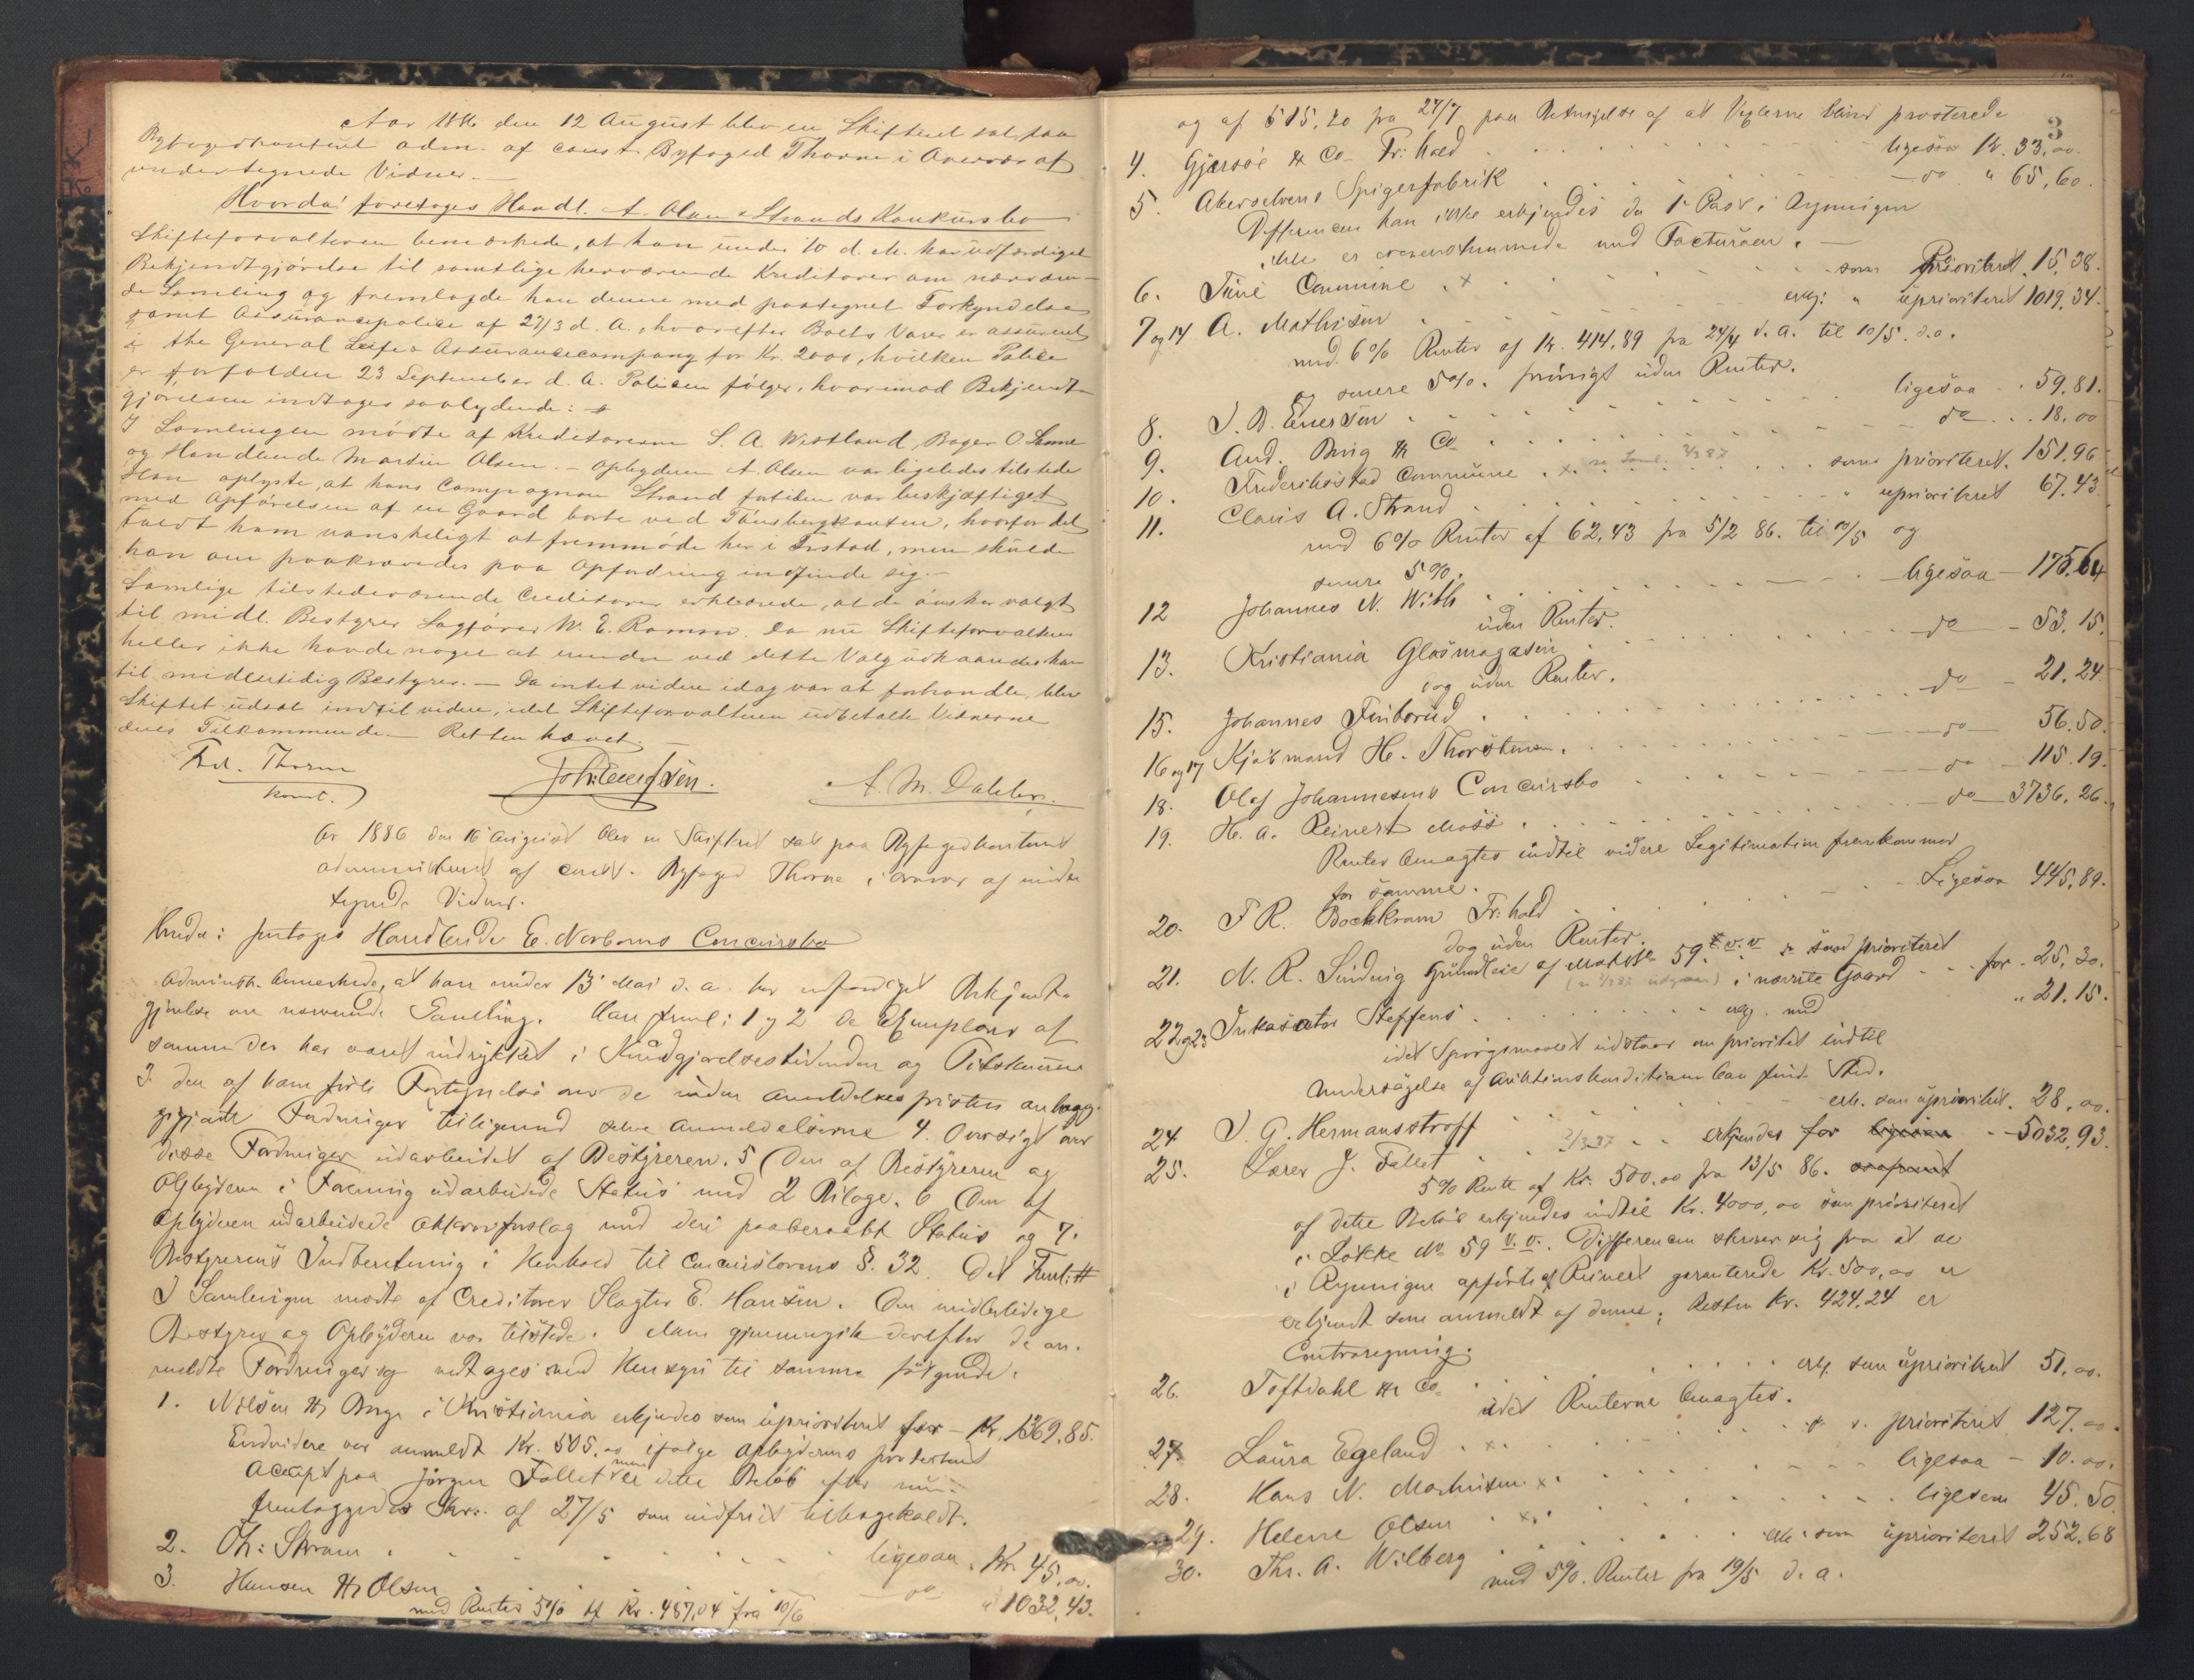 Aar 1886 den 12 August blev en Skifteret sat paa
Byfogedkontoret adm. af const. Byfoged Thorne i Overvær af
undertegnede Vidner. —
Hvorda: foretoges Handl. A. Olsen & Strands Konkursbo
Skifteforvalteren bemærkede, at han under 10 d. M. har udfærdiget
Bekjendtgjørelse til samtlige herværende Kreditorer om nærværen-
de Samling og fremlagde han denne med paategnet Forkyndelse
samt Assurancepolice af 27/3 d. A., hvorefter Boets Varer er assureret
i the General Life & Assurancecompany for Kr. 2000, hvilken Police
er forfalden 23 September d. A. Policen følger, hvorimod Bekjendt-
gjørelsen indtages saalydende:
I Samlingen mødte af Kreditorerne S. A. Westland, Bager O. Lunne
og Handlende Martin Olsen. — Opbyderen A. Olsen var ligeledes tilstede
Han oplyste, at hans Compagnon Strand fortiden var beskjæftiget
med Opførelsen af en Gaard borte ved Tønsbergkanten, hvorfor det
faldt ham vanskeligt at fremmøde her i Fr.stad, men skulde
han om paakrævedes paa Opfordring indfinde sig. —
Samtlige tilstedeværende Creditorer erklærede, at de ønsker valgt
til midl. Bestyrer Sagfører W. E. Ramm. Da nu Skifteforvalteren
heller ikke havde noget at erindre ved dette Valg udnævntes han
til midlertidig Bestyrer. — Da intet videre idag var at forhandle, blev
Skiftet udsat indtil videre, idet Skifteforvalteren udbetalte Vidnerne
deres Tilkommende. — Retten hævet.
Fred. Thorne
const.
Joh. Evensen.
A. M. Dahler.
Ar 1886 den 16 August blev en Skifteret sat paa Byfogedkontoret
administreret af const. Byfoged Thorne i Overvær af under
tegnede Vidner.
Hvorda: foretoges Handlende E. Norboms Concursbo
Administr. bemærkede, at han under 13 Mai d. a. har udfærdiget Bekjendt-
gjørelse om nærværende Samling. Han freml: 1 og 2 de Exemplarer af
samme der har været indrykket i Kundgjørelsestidenden og Tilskueren
3 den af ham førte Fortegnelse over de inden Anmeldelsesfristen anlagg
gjorte Fordringer tilligemed selve Anmeldelserne 4. Oversigt over
disse Fordringer udarbeidet af Bestyreren. 5 Den af Bestyreren og
Opbyderen i Forening udarbeidede Status med 2 Bilage. 6 Den af
Opbyderen udarbeidede Akkordforslag med deri paaberaabt Status og 7.
Bestyrerens Indberetning i Henhold til Concurslovens §. 32. Det Freml: #
I Samlingen mødte af Creditorer Slagter E. Hansen. Den midlertidige
Bestyrer og Opbyderen var tilstede. Man gjennemgik derefter de an-
meldte Fordringer og vedtoges med Hensyn til samme følgende:
1. Nilsen & Berge i Kristiania erkjendes som uprioriteret for — Kr. 1369.85.
Endvidere var anmeldt Kr. 505.00 ifølge Opbyderens protesteret
Accept paa Jørgen Fallet men er dette Beløb efter nu
fremlaggende Skr. af 27/5 som indfriet tilbagekaldt.
2. Th: Skram . . . ligesaa . Kr. 45,00.
3. Hansen & Olsen . . . — do — " 1032,43.
med Renter 5% af Kr. 487,04 fra 10/6
3
og af 515,20 fra 27/7 paa Betingelse af at Vexlerne bliver protesterede
4. Gjersøe & Co Fr: hald . . . ligesaa Kr. 33,00.
5. Akerselvens Spigerfabrik . . . — do " 65,60.
Differencen kan ikke erkjendes da 1 Post i Regningen
ikke er overensstemmede med Facturaen. —
6. Tune Commune . x . . . som Prioriteret 15,38.
7 og 14 A. Mathisen . . . erkj: " uprioriteret 1019,34.
med 6% Renter af Kr. 414,89 fra 24/4 d. a. til 10/5 d. a.
og senere 5%. forøvrigt uden Renter.
8. J. B. Enersen . . . ligesaa . . 59.81.
9. And. Bing & Co . . . do . . . 18.00
10. Frederikstad Commune . x. se Saml. 2/3 87 . . . som prioriteret. 151,96
11. Claus A. Strand . . . " uprioriteret 67.43
med 6% Renter af 62,43 fra 5/2 86. til 10/5 og
senere 5%.
12 Johannes N. With . . . ligesaa — 175.64
uden Renter.
13. Kristiania Glasmagasin . . . do — 53.15.
dog uden Renter.
15. Johannes Finborud . . . do — 21.24.
16 og 17 Kjøbmand H. Thorstensen. . . . do — 56.50.
18. Olaf Johannesens Concursbo . . . do — 115.19.
19. H. A. Reinert Moss . . . do — 3736,26.
Renter benægtes indtil videre Legitimation fremkommer
for samme.
20. F R. Bockkram Fr: hald . . . Ligesaa 445,89.
dog uden Renter.
21. N. R. Sindwig Grundleie af Matr. No 59. v. v er som prioriteret
(se 2/3 87 udgaar) i nævnte Gaard . . . for . 25,30.
22 og 23 Inkasator Steffens . . . erkj. med " 21.15.
idet Spørgsmaalet udstaar om prioritet indtil
Undersøgelse af Auktionskonditionerne kan finde Sted.
24. J. G. Hermansstroff . . . erk. som uprioritet. 28,00.
25. Lærer J. Fallet . . 2/3 87 . . erkjendes for ligesaa — 5032,93.
5% Rente af Kr. 500.00 fra 13/5 86.
af dette Beløb erkjendes indtil Kr. 4000,00 som prioriteret
i Løkke No 59 v. v. Differencen skriver sig fra at de
i Regningen opførte af Reinert garanterede Kr. 500,00 er
erkjendt som anmeldt af denne; Resten Kr. 424,24 er
Contraregning.
26. Toftdahl & Co . . . erk. som uprioriteret 51.00.
idet Renterne benægtes.
27 Laura Egeland . x . . . prioriteret 127.00.
28. Hans N. Mathisen x . . . ligesaa — 10.00.
29. Helene Olsen . x . . . ligesom 45.50
30. Thr. A. Wilberg . . . erk: som uprioriteret 252,68
med 5%. Renter fra 19/5 d. a.